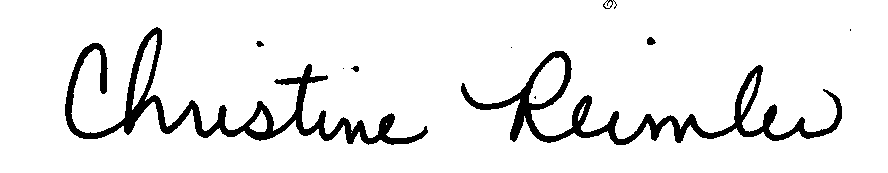 Christine Reimler